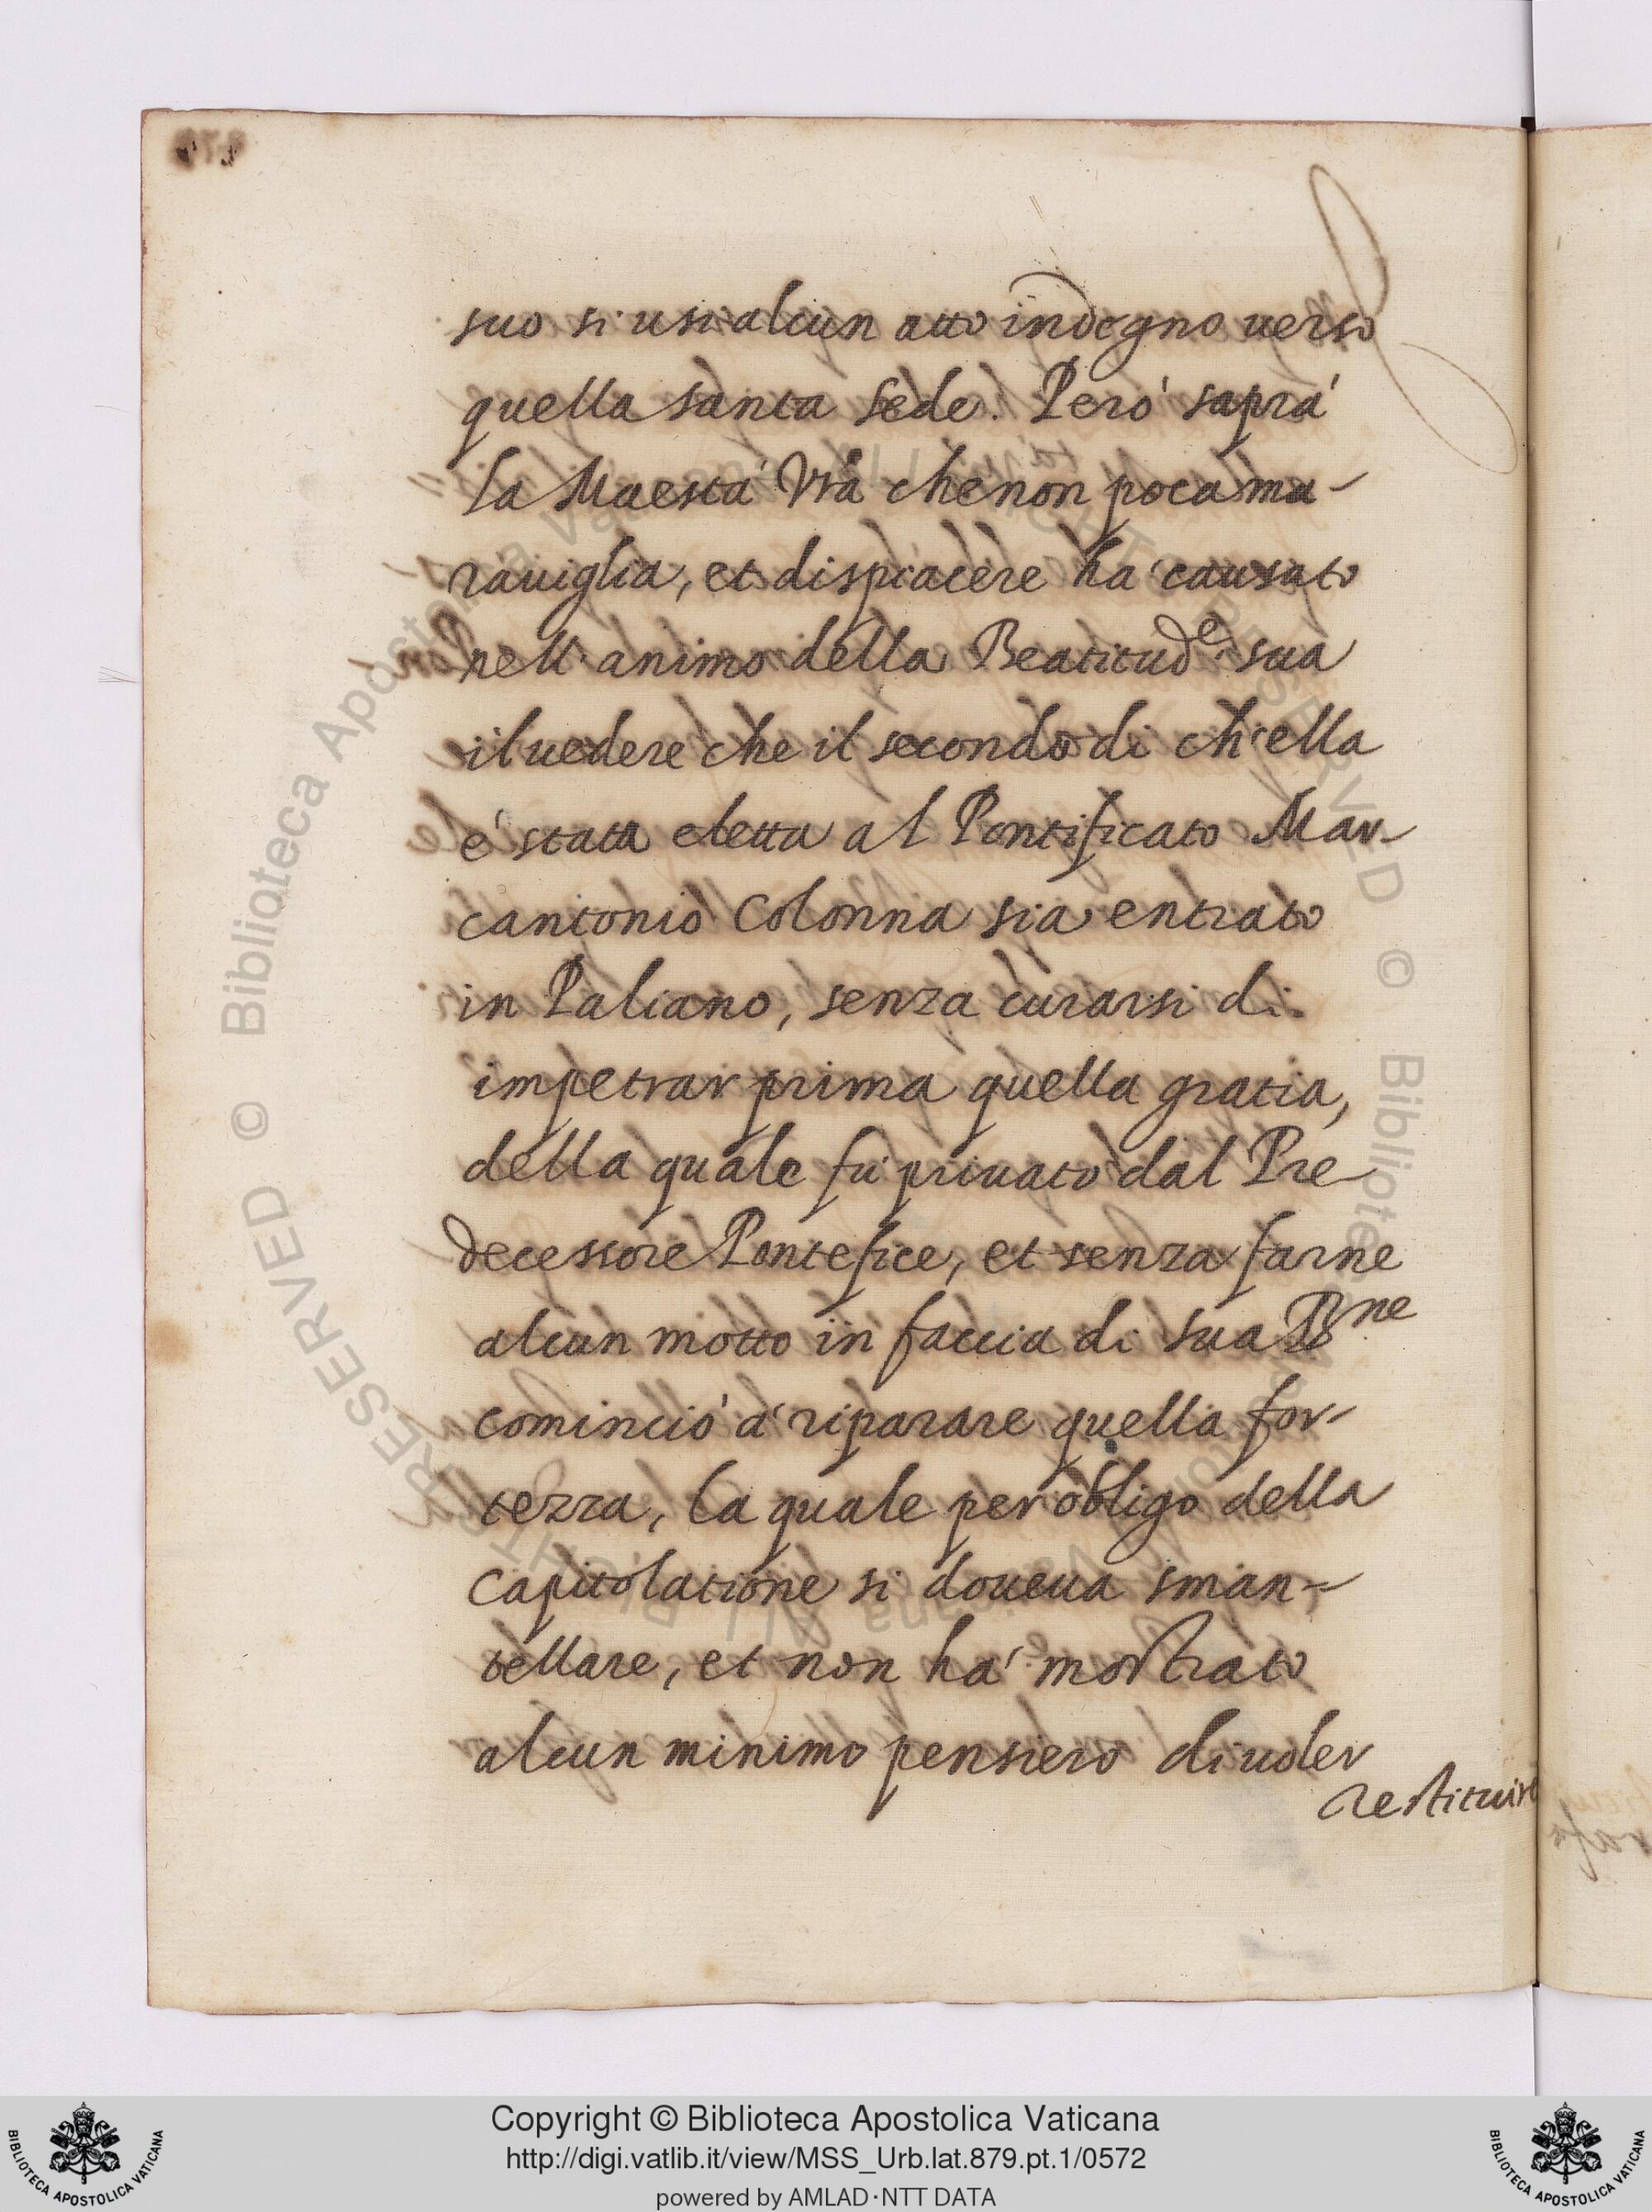 suo si usi alcun atto indegno verso
quella santa sede. Peró saprá
la Maestá Vrã che non poca ma-
rauiglia, et dispiacere há causato
nell'animo della Beatitud.e sua
il uedere che il secondo di ch'ella
é stata eletta al Pontificato Mar-
cantonio Colonna sia entrato
in Paliano, senza curarsi di
impetrar prima quella gratia,
della quale fú priuato dal Pre-
decessore Pontefice, et senza farne
alcun motto in faccia di sua B.ne
cominció á riparare quella for-
tezza, la quale per obligo della
Capitolatione si doueua sman-
tellare, et non há mostrato
alcun minimo pensiero di uoler
restituire
Copyright © Biblioteca Apostolica Vaticana
http://digi.vatlib.it/view/MSS_Urb.lat.879.pt.1/0572
powered by AMLAD·NTT DATA
BIBLIOTECA APOSTOLICA VATICANA
BIBLIOTECA APOSTOLICA VATICANA
© Biblioteca Apostolica Vaticana ALL RIGHTS RESERVED
© Biblioteca Apostolica Vaticana ALL RIGHTS RESERVED